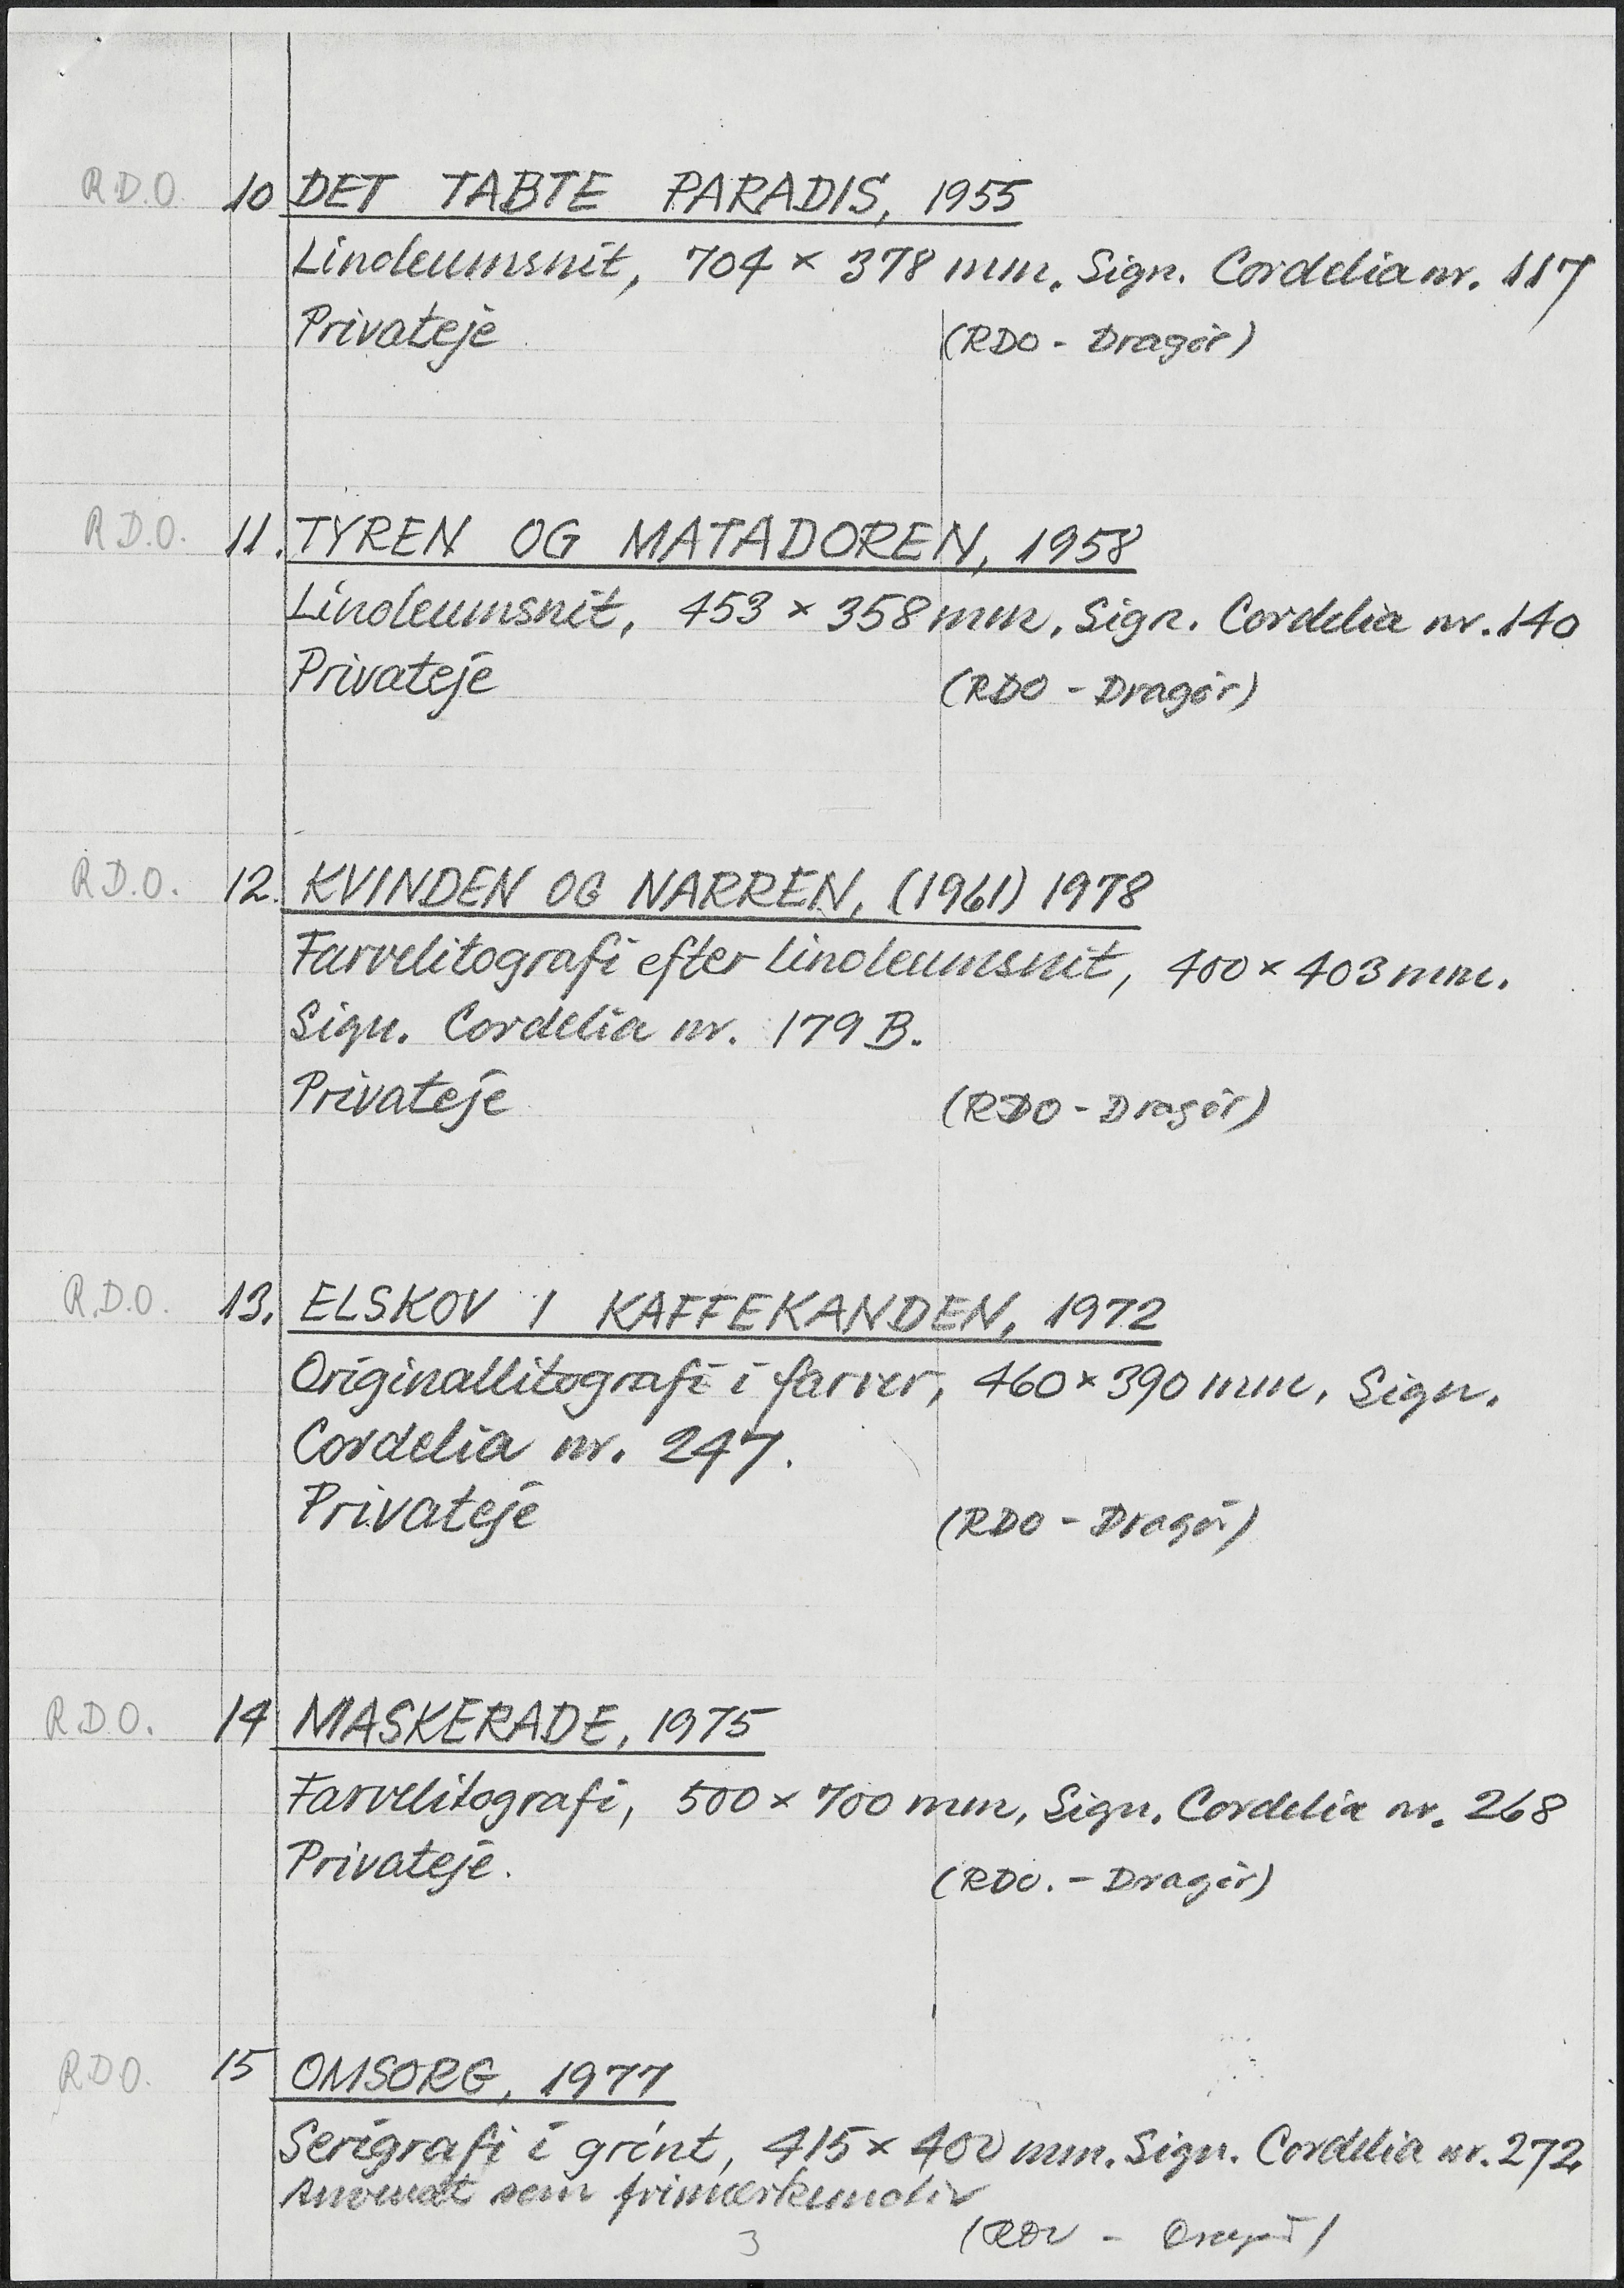 R.D.O. 10 DET TABTE PARADIS, 1955
Linoleumsnit, 704 × 378 mm. Sign. Cordelia nr. 117
Privateje (RDO - Dragör)
R.D.O. 11. TYREN OG MATADOREN, 1958
Linoleumsnit, 453 × 358 mm, Sign. Cordelia nr. 140
Privateje (RDO - Dragör)
R.D.O. 12. KVINDEN OG NARREN, (1961) 1978
Farvelitografi efter linoleumsnit, 400 × 403 mm.
Sign. Cordelia nr. 179 B.
Privateje (RDO - Dragör)
R.D.O. 13. ELSKOV I KAFFEKANDEN, 1972
Originallitografi i farver, 460 × 390 mm, Sign.
Cordelia nr. 247.
Privateje (RDO - Dragör)
R.D.O. 14 MASKERADE, 1975
Farvelitografi, 500 × 700 mm, Sign. Cordelia nr. 268
Privateje. (RDO. - Dragör)
R.D.O. 15 OMSORG, 1977
Serigrafi i grönt, 415 × 400 mm. Sign. Cordelia nr. 272
Anvendt som frimærkemotiv
3 (RDO - Dragör)